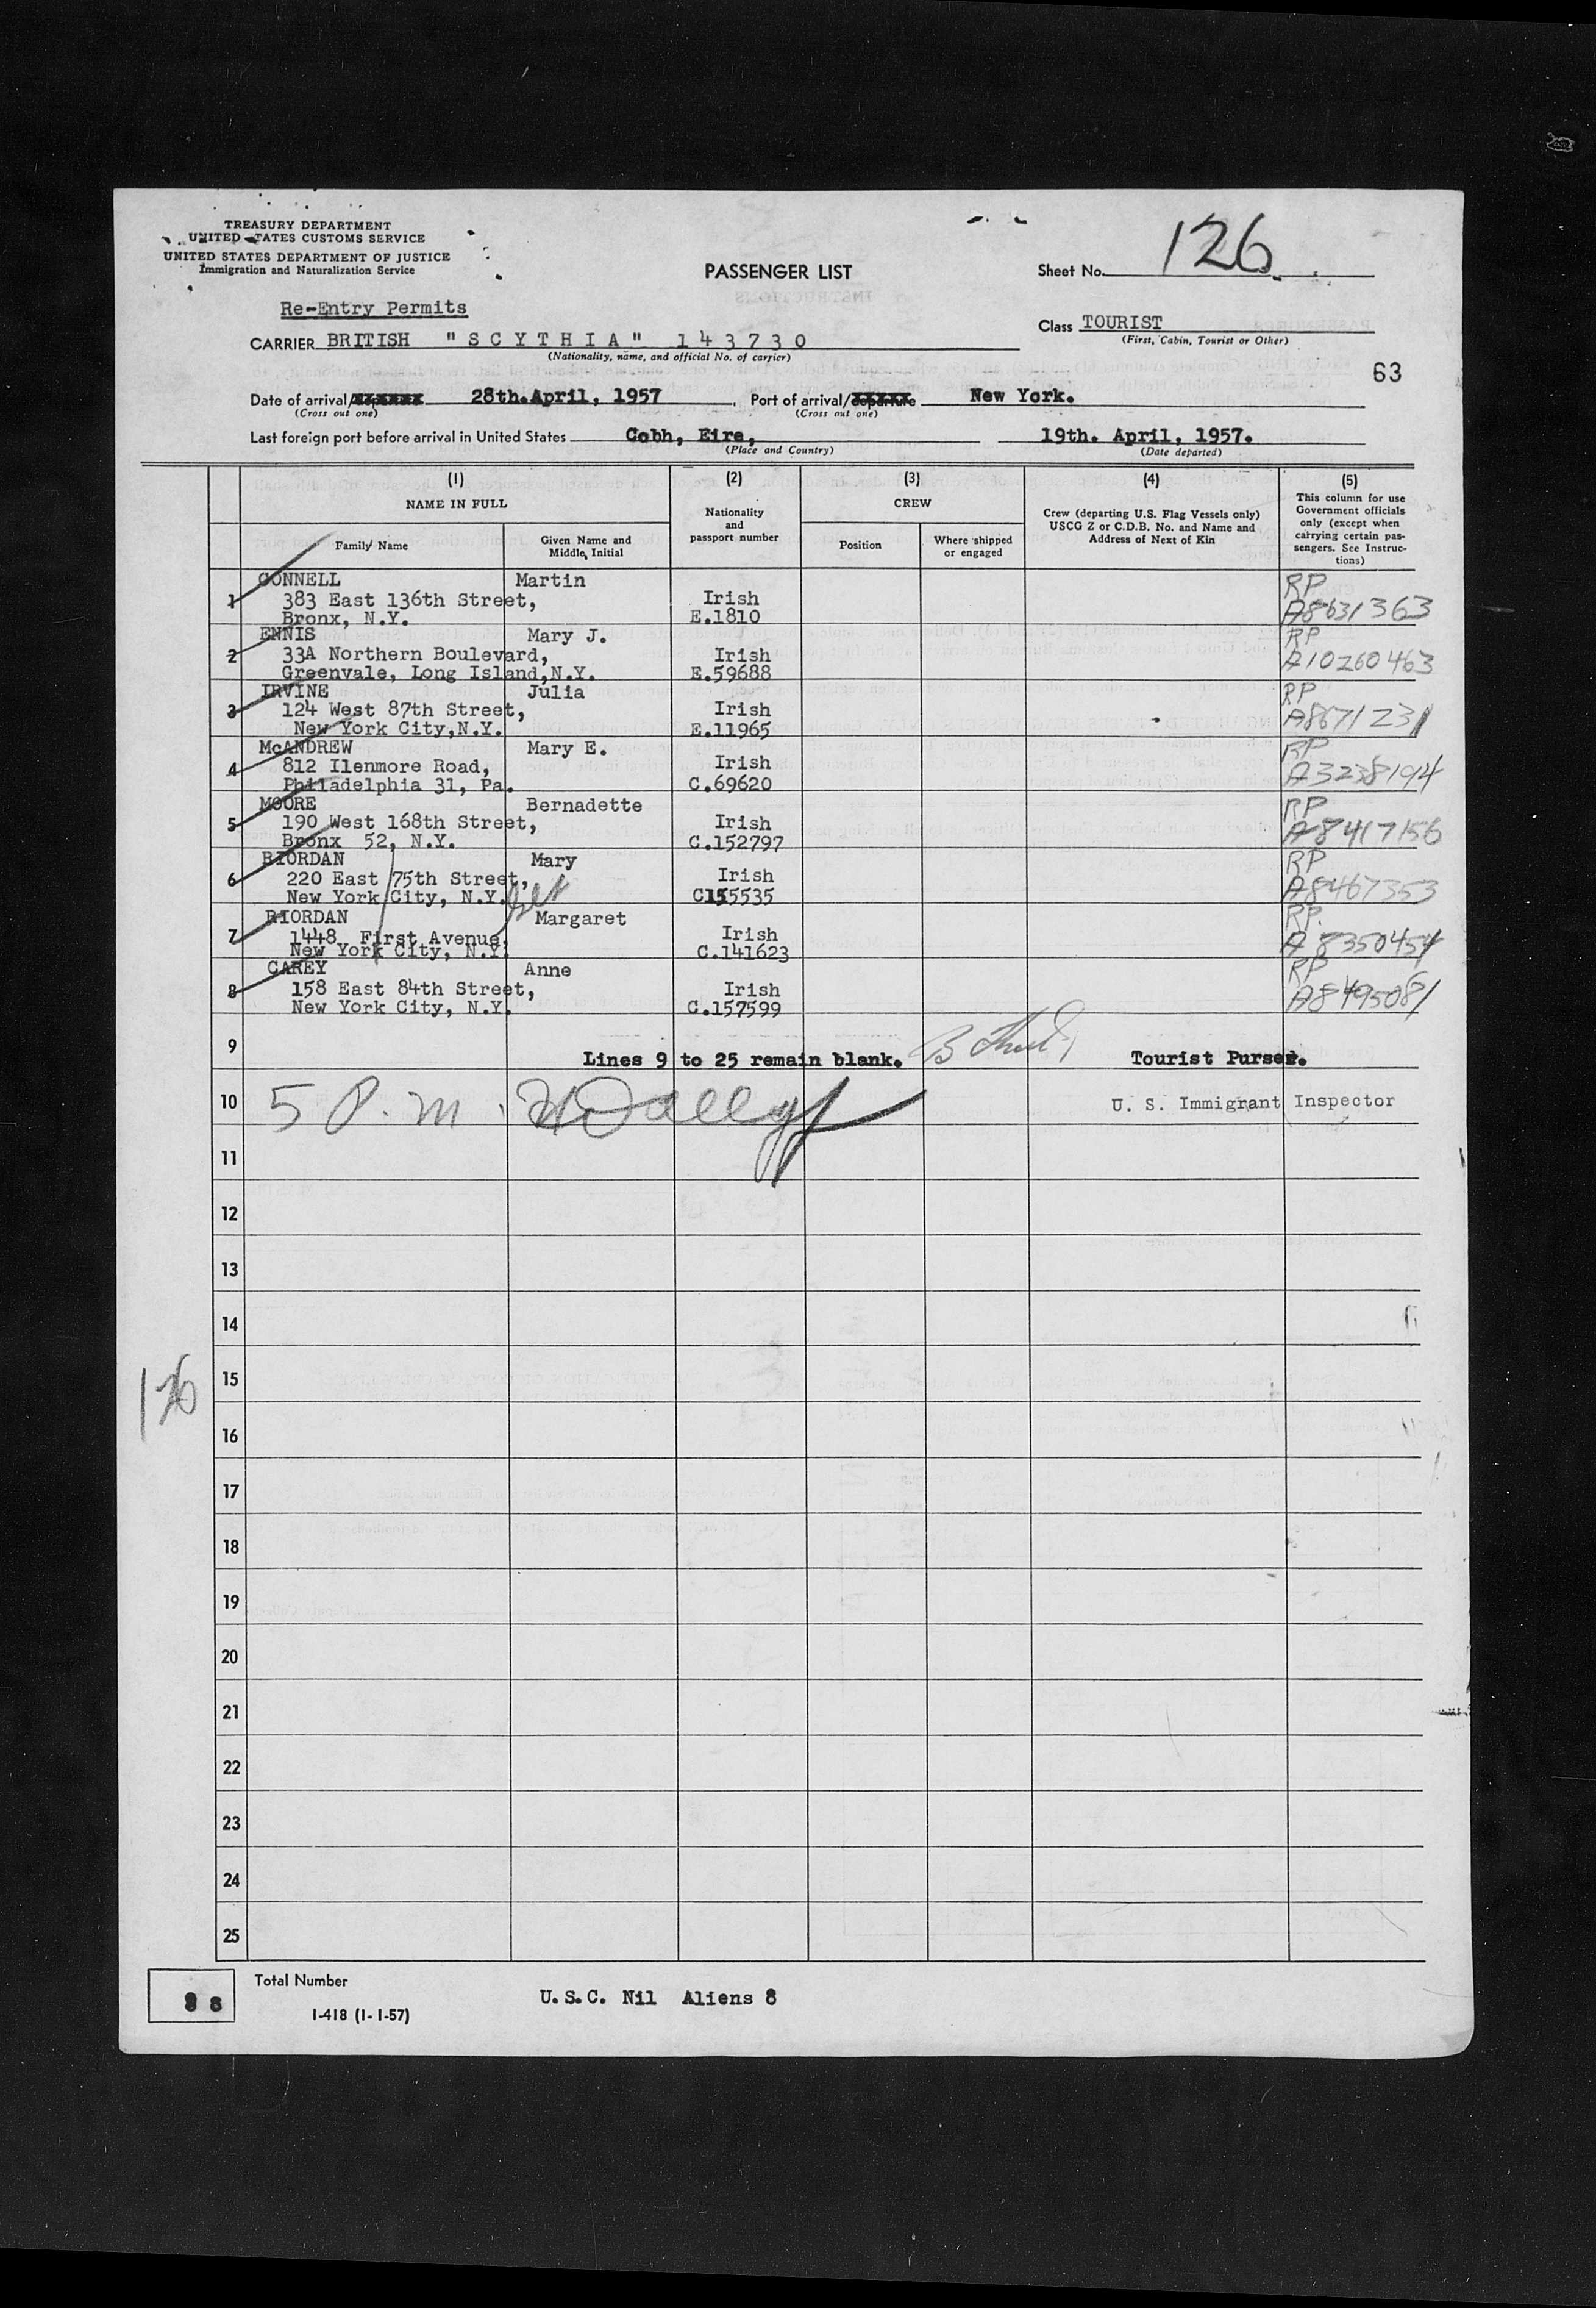 TREASURY DEPARTMENT
UNITED STATES CUSTOMS SERVICE
UNITED STATES DEPARTMENT OF JUSTICE
Immigration and Naturalization Service
PASSENGER LIST
Sheet No. 126
Re-Entry Permits
CARRIER BRITISH "SCYTHIA" 143730
(Nationality, name, and official No. of carrier)
Class TOURIST
(First, Cabin, Tourist or Other)
63
Date of arrival/ 28th.April, 1957 Port of arrival/departure New York.
(Cross out one) (Cross out one)
Last foreign port before arrival in United States Cobh, Eire, 19th. April, 1957.
(Place and Country) (Date departed)
(1) (2) (3) (4) (5)
NAME IN FULL
Family Name
Given Name and Middle Initial
Nationality and passport number
CREW
Position
Where shipped or engaged
Crew (departing U.S. Flag Vessels only) USCG Z or C.D.B. No. and Name and Address of Next of Kin
This column for use Government officials only (except when carrying certain passengers. See Instructions)
CONNELL Martin RP
1 383 East 136th Street, Irish A8631363
Bronx, N.Y. E.1810
ENNIS Mary J. RP
2 33A Northern Boulevard, Irish A10260463
Greenvale, Long Island,N.Y. E.59688
IRVINE Julia RP
3 124 West 87th Street, Irish A8671231
New York City,N.Y. E.11965
McANDREW Mary E. RP
4 812 Ilenmore Road, Irish A3238194
Philadelphia 31, Pa. C.69620
MOORE Bernadette RP
5 190 West 168th Street, Irish A8417156
Bronx 52, N.Y. C.152797
RIORDAN Mary RP
6 220 East 75th Street, Irish A8467353
New York City, N.Y. C155535
RIORDAN Margaret RP.
7 1448 First Avenue, Irish A8350454
New York City, N.Y. C.141623
CAREY Anne RP
8 158 East 84th Street, Irish A8495081
New York City, N.Y. C.157599
9 Lines 9 to 25 remain blank. Tourist Purser.
10 5 P.m. U. S. Immigrant Inspector
11
12
13
14
15
126
16
17
18
19
20
21
22
23
24
25
8 8 Total Number
I-418 (1-1-57)
U.S.C. Nil Aliens 8